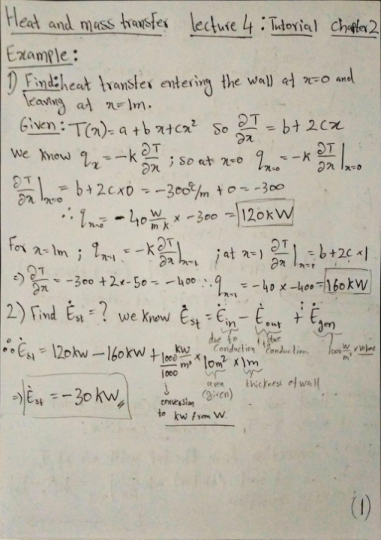 Heat and mass transfer lecture 4: Tutorial Chapter 2
Example:
1) Find: heat transfer entering the wall at x=0 and
leaving at x=1m.
Given: T(x)=a+bx+cx² so ∂T/∂x = b+2cx
We know q_x = -k ∂T/∂x ; so at x=0 q_x=0 = -k ∂T/∂x|x=0
∂T/∂x|x=0 = b+2c×0 = -300°C/m +0 = -300
∴ q_x=0 = -40 W/mk × -300 = 120kW
For x=1m ; q_x=1 = -k ∂T/∂x|x=1 ; at x=1 ∂T/∂x|x=1 = b+2c×1
⇒ ∂T/∂x = -300+2×-50 = -400 ∴ q_x=1 = -40 × -400 = 160kW
2) Find Ėst = ? we know Ėst = Ėin - Ėout + Ėgen
due to conduction due conduction 1000 W/m³ × volume
∴ Ėst = 120kW - 160kW + 1000/1000 kW/m³ × 10m² × 1m
area (given) thickness of wall
⇒ Ėst = -30kW
conversion
to kW from W.
(1)